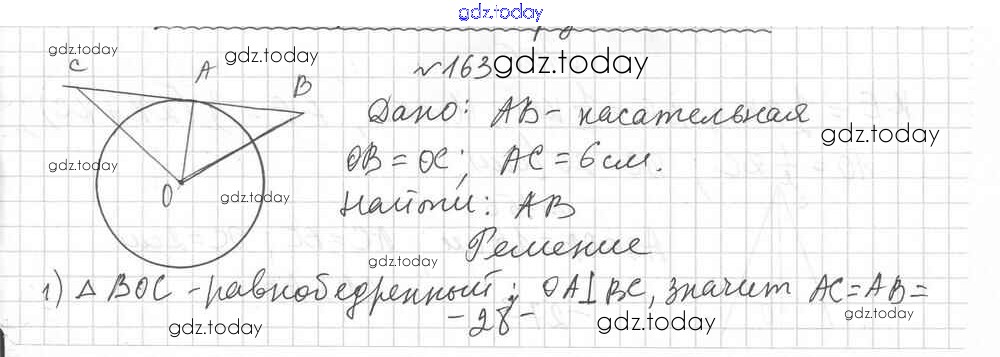 gdz.today
gdz.today
gdz.today
C A B
№163 gdz.today
Дано: AB - касательная
gdz.today
OB = OC; AC = 6 см.
gdz.today
O
gdz.today
Найти: AB
Решение
gdz.today
1) △ BOC - равнобедренный; OA⊥BC, значит AC=AB=
gdz.today
- 28 -
gdz.today
gdz.today